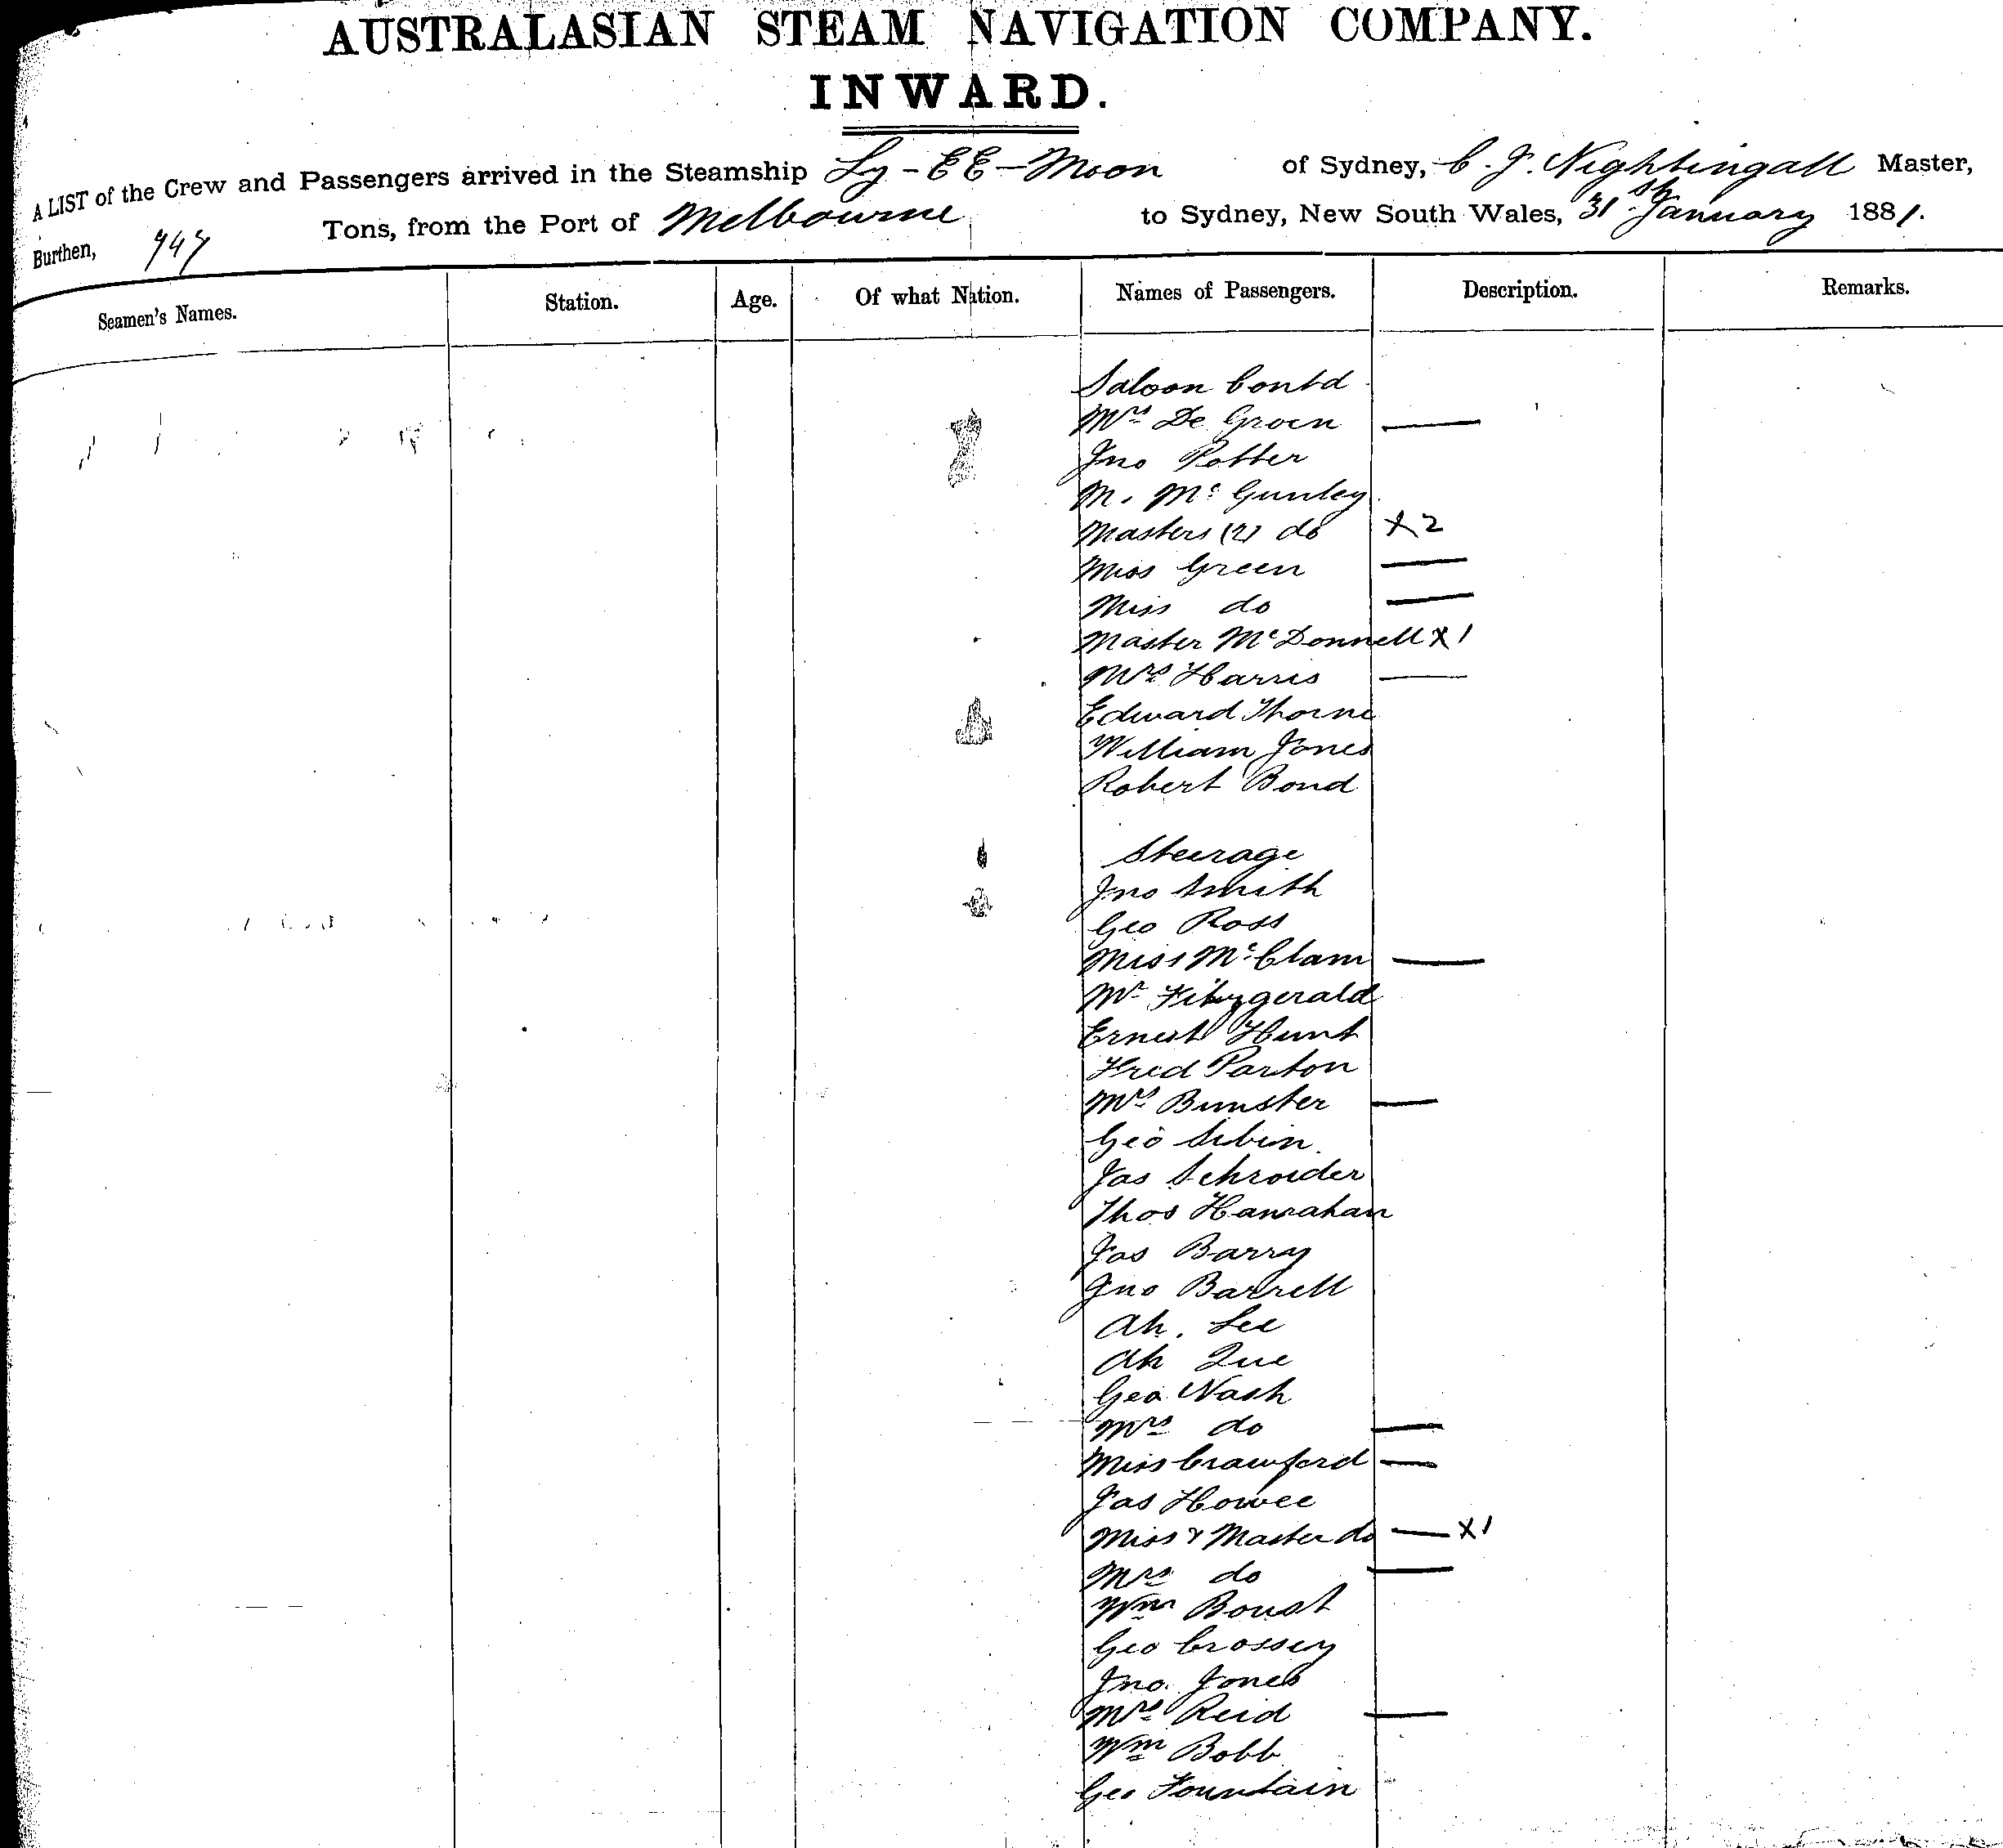 AUSTRALASIAN STEAM NAVIGATION COMPANY.
INWARD.
A LIST of the Crew and Passengers arrived in the Steamship Ly-EE-Moon of Sydney, C. J. Nightingall Master,
Burthen, 747 Tons, from the Port of Melbourne to Sydney, New South Wales, 31st January 1881.
Seamen's Names. Station. Age. Of what Nation. Names of Passengers. Description. Remarks.
Saloon Contd
Mrs De Groen —
Jno Potter
M. Mc Gunley
Masters (2) do X2
Miss Green —
Miss do —
Master McDonnell X1
Mrs Harris —
Edward Thorne
William Jones
Robert Bond
Steerage
Jno Smith
Geo Ross
Miss McClam —
Mr Fitzgerald
Ernest Hunt
Fred Parton
Mrs Bunster —
Geo Sibin
Jas Schroider
Thos Hanrahan
Jas Barry
Jno Barrell
Ah. Lee
Ah Que
Geo Nash
Mrs do —
Miss Crawford —
Jas Howee
Miss & Master do — X1
Mrs do —
Wm Boust
Geo Crossey
Jno. Jones
Mrs Reid —
Wm Bobb
Geo Fountain